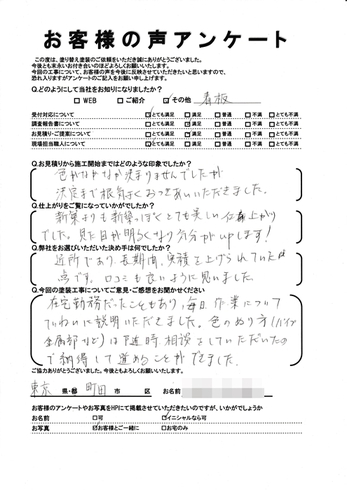 お客様の声アンケート
この度は、塗り替え塗装のご依頼をいただき誠にありがとうございました。
今後とも末永いお付き合いのほどよろしくお願いいたします。
今回の工事について、お客様の声を今後に反映させていただきたいと思いますので、
恐れ入りますがアンケートのご記入をお願い申し上げます。
Q.どのようにして当社をお知りになりましたか?
□WEB □ご紹介 ☑その他 看板
受付対応について ☑とても満足 □満足 □普通 □不満 □とても不満
調査報告書について □とても満足 ☑満足 □普通 □不満 □とても不満
お見積り・ご提案について ☑とても満足 □満足 □普通 □不満 □とても不満
現場担当職人について ☑とても満足 □満足 □普通 □不満 □とても不満
Q.お見積りから施工開始まではどのような印象でしたか?
色がなかなか決まりませんでしたが
決定まで根気よくおつきあいいただきました。
Q.仕上がりをご覧になっていかがでしたか?
新築よりも新築っぽくとても美しい仕上がり
でした。見た目が明るくなり気分がupします!
Q.弊社をお選びいただいた決め手は何でしたか?
近所であり、長期間、実績を上げられていた
点です。口コミも良いように思いました。
Q.今回の塗装工事についてご意見・ご感想をお聞かせください
在宅勤務だったこともあり、毎日、作業について
ていねいに説明いただきました。色のぬり方(パイプ
金属部など)は適時相談させていただいたの
で納得して進めることができました。
ご協力ありがとうございました。今後ともよろしくお願いします。
東京 県・都 町田 市 区 お名前
お客様のアンケートやお写真をHPにて掲載させていただきたいのですが、いかがでしょうか
お名前 □可 ☑イニシャルなら可
お写真 ☑お客様とご一緒に □お宅のみ